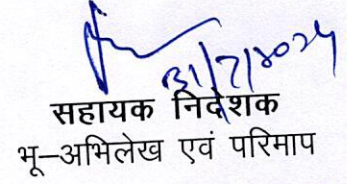 31/7/2024
सहायक निदेशक
भू–अभिलेख एवं परिमाप